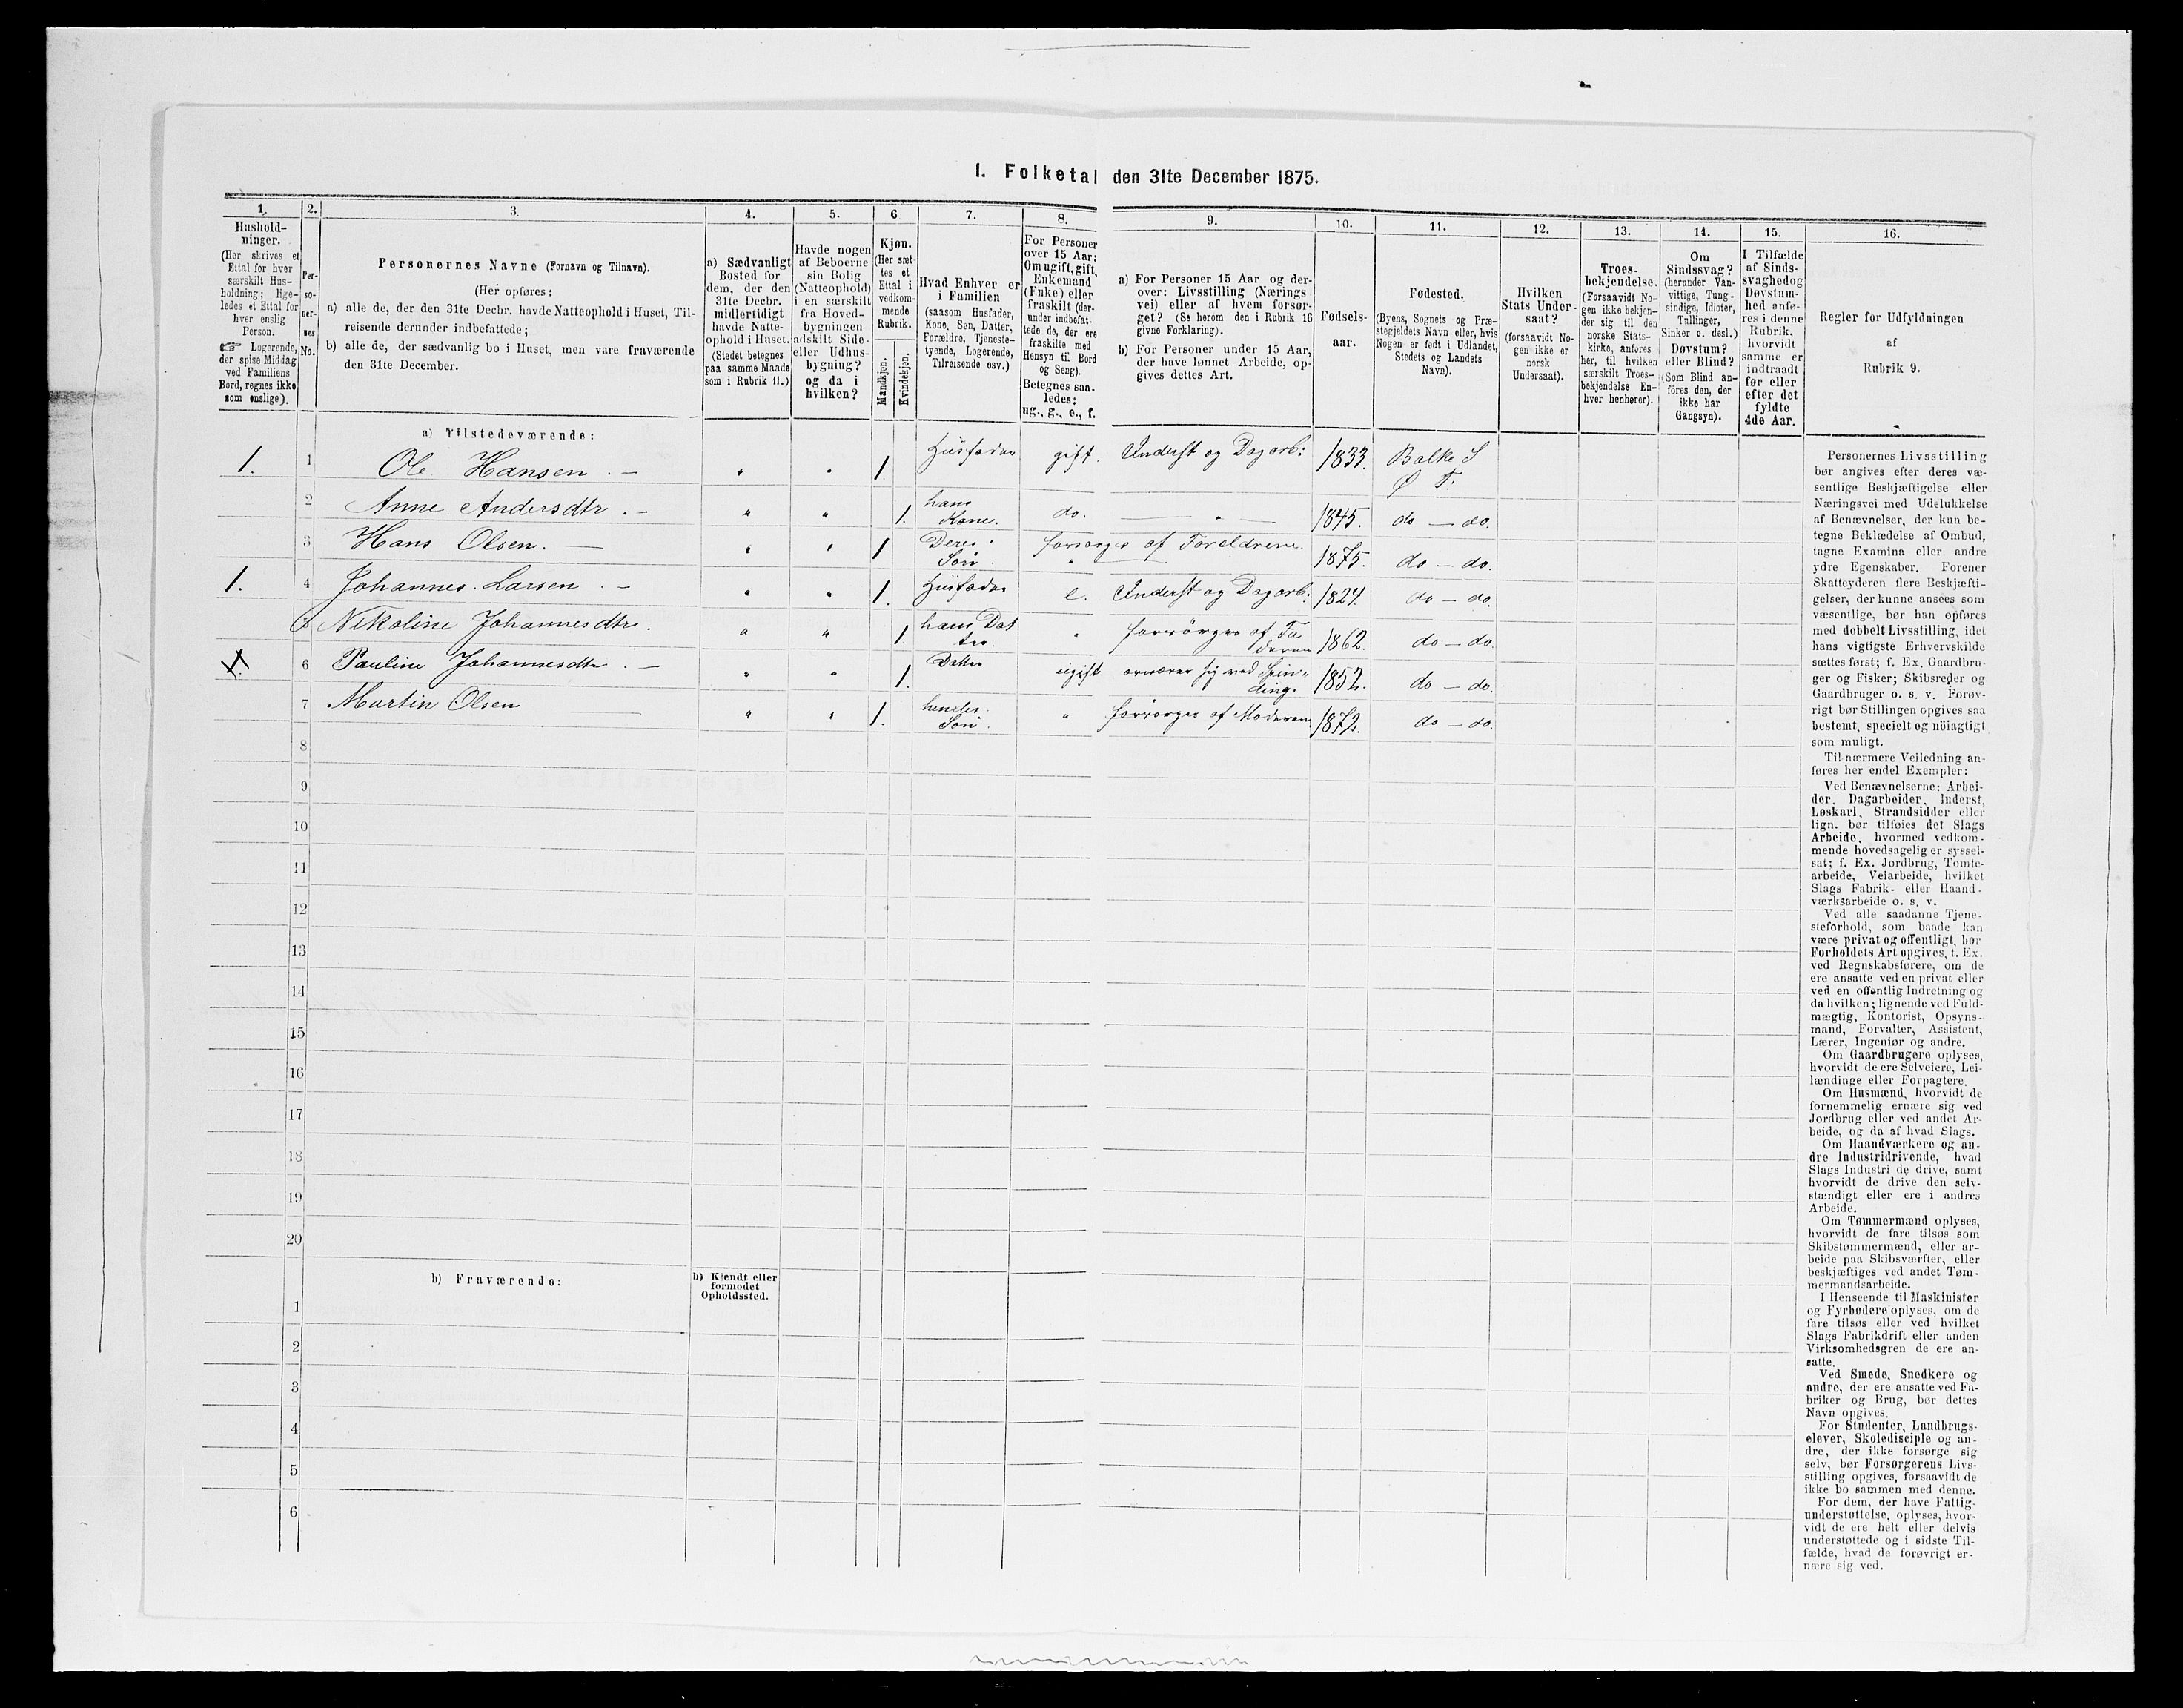 I. Folketal den 31te December 1875.
1. 2. 3. 4. 5. 6 7. 8. 9. 10. 11. 12. 13. 14. 15. 16.
Hushold-
ninger.
(Her skrives et
Ettal for hver
særskilt Hus-
holdning; lige-
ledes et Ettal for
hver enslig
Person.
☞ Logerende,
der spise Middag
ved Familiens
Bord, regnes ikke
som enslige).
Per-
so-
ner-
nes
No.
Personernes Navne (Fornavn og Tilnavn).
(Her opføres:
a) alle de, der den 31te Decbr. havde Natteophold i Huset, Til-
reisende derunder indbefattede;
b) alle de, der sædvanlig bo i Huset, men vare fraværende
den 31te December.
a) Sædvanligt
Bosted for
dem, der den
31te Decbr.
midlertidigt
havde Natte-
ophold i Huset.
(Stedet betegnes
paa samme Maade
som i Rubrik 11.)
Havde nogen
af Beboerne
sin Bolig
(Natteophold)
i en særskilt
fra Hoved-
bygningen
adskilt Side-
eller Udhus-
bygning?
og da i
hvilken?
Kjøn.
(Her sæt-
tes et
Ettal i
vedkom-
mende
Rubrik.
Mandkjøn.
Kvindekjøn.
Hvad Enhver er
i Familien
(saasom Husfader,
Kone, Søn, Datter,
Forældre, Tjeneste-
tyende, Logerende,
Tilreisende osv.)
For Personer
over 15 Aar:
Om ugift, gift,
Enkemand
(Enke) eller
fraskilt (der-
under indbefat-
tede de, der ere
fraskilte med
Hensyn til Bord
og Seng).
Betegnes saa-
ledes:
ug., g., e., f.
a) For Personer 15 Aar og der-
over: Livsstilling (Nærings
vei) eller af hvem forsør-
get? (Se herom den i Rubrik 16
givne Forklaring).
b) For Personer under 15 Aar,
der have lønnet Arbeide, op-
gives dettes Art.
Fødsels-
aar.
Fødested.
(Byens, Sognets og Præ-
stegjeldets Navn eller, hvis
Nogen er født i Udlandet,
Stedets og Landets
Navn).
Hvilken
Stats Under-
saat?
(forsaavidt No-
gen ikke er
norsk
Undersaat).
Troes-
bekjendelse.
(Forsaavidt No-
gen ikke bekjen-
der sig til den
norske Stats-
kirke, anføres
her, til hvilken
særskilt Troes-
bekjendelse En-
hver henhører).
Om
Sindssvag?
(herunder Van-
vittige, Tung-
sindige, Idioter,
Tullinger,
Sinker o. desl.)
Døvstum?
eller Blind?
(Som Blind an-
føres den, der
ikke har
Gangsyn).
I Tilfælde
af Sinds-
svaghed og
Døvstum-
hed anfø-
res i denne
Rubrik,
hvorvidt
samme er
indtraadt
før eller
efter det
fyldte
4de Aar.
Regler for Udfyldningen
af
Rubrik 9.
a) Tilstedeværende:
1. 1 Ole Hansen. — " " 1. Husfader gift. Inderst og Dagarb: 1833. Balke S
Ø T.
2 Anne Andersdtr. — " " 1. hans Kone. do. — " — 1845. do — do.
3 Hans Olsen. — " " 1 Deres Søn. forsørges af Foreldrene. " 1875. do — do.
1. 4 Johannes Larsen. — " " 1. Husfader e. Inderst og Dagarb: 1824. do — do.
5 Nikoline Johannesdtr. " " 1. hans Dat ter. " forsörges af Fa deren 1862. do — do.
6 Pauline Johannesdtr. — " " 1. Datter ugift ernærer sig ved Spin- ding. 1852. do — do.
7 Martin Olsen — " " 1. hendes Søn. " forsörges af Moderen 1872. do — do.
8
9
10
11
12
13
14
15
16
17
18
19
20
b) Fraværende:
b) Kjendt eller
formodet
Opholdssted.
1
2
3
4
5
6
Personernes Livsstilling
bør angives efter deres væ-
sentlige Beskjæftigelse eller
Næringsvei med Udelukkelse
af Benævnelser, der kun be-
tegne Beklædelse af Ombud,
tagne Examina eller andre
ydre Egenskaber. Forener
Skatteyderen flere Beskjæfti-
gelser, der kunne ansees som
væsentlige, bør han opføres
med dobbelt Livsstilling, idet
hans vigtigste Erhvervskilde
sættes først; f. Ex. Gaardbru-
ger og Fisker; Skibsreder og
Gaardbruger o. s. v. Forøv-
rigt bør Stillingen opgives saa
bestemt, specielt og nöiagtigt
som muligt.
Til nærmere Veiledning an-
føres her endel Exempler:
Ved Benævnelserne: Arbei-
der, Dagarbeider, Inderst,
Løskarl, Strandsidder eller
lign. bør tilføies det Slags
Arbeide, hvormed vedkom-
mende hovedsagelig er syssel-
sat; f. Ex. Jordbrug, Tomte-
arbeide, Veiarbeide, hvilket
Slags Fabrik- eller Haand-
værksarbeide o. s. v.
Ved alle saadanne Tjene-
steforhold, som baade kan
være privat og offentligt, bør
Forholdets Art opgives, f. Ex.
ved Regnskabsførere, om de
ere ansatte ved en privat eller
ved en offentlig Indretning og
da hvilken; lignende ved Fuld-
mægtig, Kontorist, Opsyns-
mand, Forvalter, Assistent,
Lærer, Ingeniør og andre.
Om Gaardbrugere oplyses,
hvorvidt de ere Selveiere, Lei-
lændinge eller Forpagtere.
Om Husmænd, hvorvidt de
fornemmelig ernære sig ved
Jordbrug eller ved andet Ar-
beide, og da af hvad Slags.
Om Haandværkere og an-
dre Industridrivende, hvad
Slags Industri de drive, samt
hvorvidt de drive den selv-
stændigt eller ere i andres
Arbeide.
Om Tømmermænd oplyses,
hvorvidt de fare tilsøs som
Skibstømmermænd, eller ar-
beide paa Skibsværfter, eller
beskjæftiges ved andet Tøm-
mermandsarbeide.
I Henseende til Maskinister
og Fyrbødere oplyses, om de
fare tilsøs eller ved hvilket
Slags Fabrikdrift eller anden
Virksomhedsgren de ere an-
satte.
Ved Smede, Snedkere og
andre, der ere ansatte ved Fa-
briker og Brug, bør dettes
Navn opgives.
For Studenter, Landbrugs-
elever, Skoledisciple og an-
dre, der ikke forsørge sig
selv, bør Forsørgerens Livs-
stilling opgives, forsaavidt de
ikke bo sammen med denne.
For dem, der have Fattig-
understøttelse, oplyses, hvor-
vidt de ere helt eller delvis
understøttede og i sidste Til-
fælde, hvad de forøvrigt er-
nære sig ved.